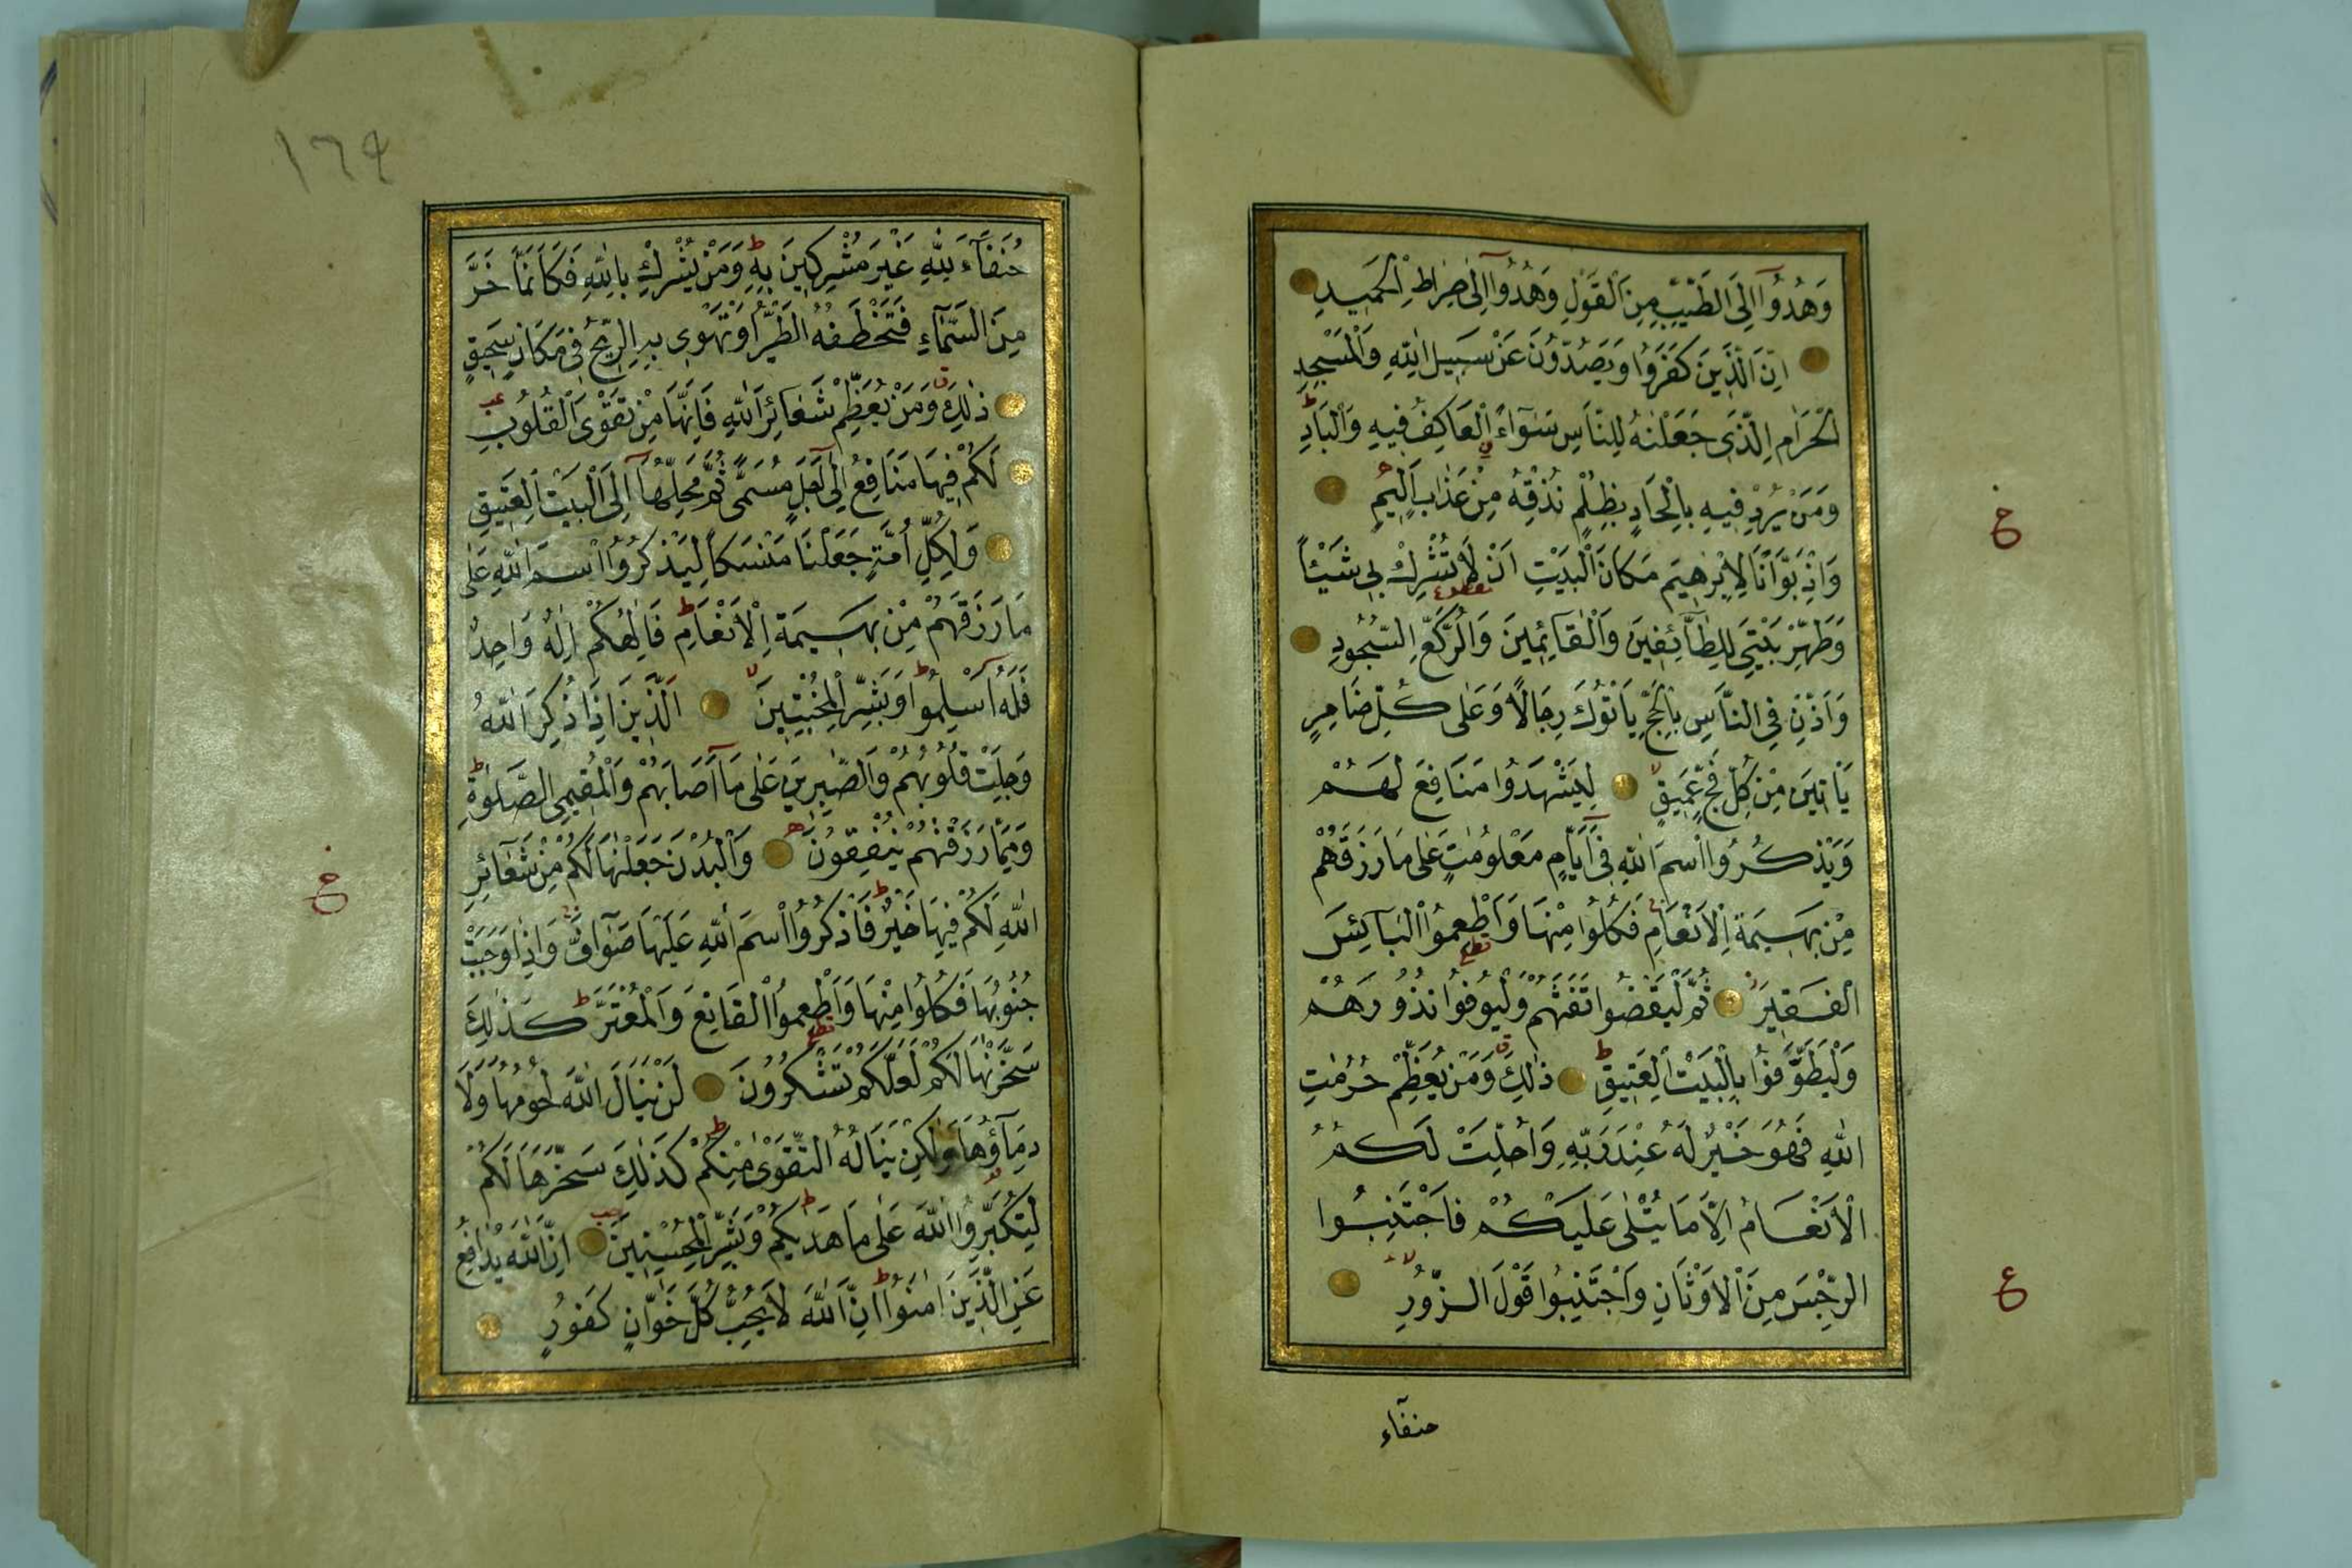 وَهُدُوٓا اِلَى الطَّيِّبِ مِنَ الْقَوْلِ وَهُدُوٓا اِلٰى صِرَاطِ الْحَمٖيدِ
اِنَّ الَّذٖينَ كَفَرُوا وَيَصُدُّونَ عَنْ سَبٖيلِ اللّٰهِ وَالْمَسْجِدِ
الْحَرَامِ الَّذٖى جَعَلْنٰهُ لِلنَّاسِ سَوَآءً الْعَاكِفُ فٖيهِ وَالْبَادِ
وَمَنْ يُرِدْ فٖيهِ بِاِلْحَادٍ بِظُلْمٍ نُذِقْهُ مِنْ عَذَابٍ اَلٖيمٍ
وَاِذْ بَوَّاْنَا لِاِبْرٰهٖيمَ مَكَانَ الْبَيْتِ اَنْ لَا تُشْرِكْ بٖى شَيْئًا
وَطَهِّرْ بَيْتِىَ لِلطَّآئِفٖينَ وَالْقَآئِمٖينَ وَالرُّكَّعِ السُّجُودِ
وَاَذِّنْ فِى النَّاسِ بِالْحَجِّ يَاْتُوكَ رِجَالًا وَعَلٰى كُلِّ ضَامِرٍ
يَاْتٖينَ مِنْ كُلِّ فَجٍّ عَمٖيقٍ لِيَشْهَدُوا مَنَافِعَ لَهُمْ
وَيَذْكُرُوا اسْمَ اللّٰهِ فٖٓى اَيَّامٍ مَعْلُومٰتٍ عَلٰى مَا رَزَقَهُمْ
مِنْ بَهٖيمَةِ الْاَنْعَامِ فَكُلُوا مِنْهَا وَاَطْعِمُوا الْبَآئِسَ
الْفَقٖيرَ ثُمَّ لْيَقْضُوا تَفَثَهُمْ وَلْيُوفُوا نُذُورَهُمْ
وَلْيَطَّوَّفُوا بِالْبَيْتِ الْعَتٖيقِ ذٰلِكَ وَمَنْ يُعَظِّمْ حُرُمٰتِ
اللّٰهِ فَهُوَ خَيْرٌ لَهُ عِنْدَ رَبِّهٖ وَاُحِلَّتْ لَكُمُ
الْاَنْعَامُ اِلَّا مَا يُتْلٰى عَلَيْكُمْ فَاجْتَنِبُوا
الرِّجْسَ مِنَ الْاَوْثَانِ وَاجْتَنِبُوا قَوْلَ الزُّورِ
حنفآء
ع
١٦٩
حُنَفَآءَ لِلّٰهِ غَيْرَ مُشْرِكٖينَ بِهٖ وَمَنْ يُشْرِكْ بِاللّٰهِ فَكَاَنَّمَا خَرَّ
مِنَ السَّمَآءِ فَتَخْطَفُهُ الطَّيْرُ اَوْ تَهْوٖى بِهِ الرّٖيحُ فٖى مَكَانٍ سَحٖيقٍ
ذٰلِكَ وَمَنْ يُعَظِّمْ شَعَآئِرَ اللّٰهِ فَاِنَّهَا مِنْ تَقْوَى الْقُلُوبِ
لَكُمْ فٖيهَا مَنَافِعُ اِلٰٓى اَجَلٍ مُسَمًّى ثُمَّ مَحِلُّهَٓا اِلَى الْبَيْتِ الْعَتٖيقِ
وَلِكُلِّ اُمَّةٍ جَعَلْنَا مَنْسَكًا لِيَذْكُرُوا اسْمَ اللّٰهِ عَلٰى
مَا رَزَقَهُمْ مِنْ بَهٖيمَةِ الْاَنْعَامِ فَاِلٰهُكُمْ اِلٰهٌ وَاحِدٌ
فَلَهُٓ اَسْلِمُوا وَبَشِّرِ الْمُخْبِتٖينَ اَلَّذٖينَ اِذَا ذُكِرَ اللّٰهُ
وَجِلَتْ قُلُوبُهُمْ وَالصَّابِرٖينَ عَلٰى مَٓا اَصَابَهُمْ وَالْمُقٖيمِى الصَّلٰوةِ
وَمِمَّا رَزَقْنٰهُمْ يُنْفِقُونَ وَالْبُدْنَ جَعَلْنٰهَا لَكُمْ مِنْ شَعَآئِرِ
اللّٰهِ لَكُمْ فٖيهَا خَيْرٌ فَاذْكُرُوا اسْمَ اللّٰهِ عَلَيْهَا صَوَآفَّ فَاِذَا وَجَبَتْ
جُنُوبُهَا فَكُلُوا مِنْهَا وَاَطْعِمُوا الْقَانِعَ وَالْمُعْتَرَّ كَذٰلِكَ
سَخَّرْنٰهَا لَكُمْ لَعَلَّكُمْ تَشْكُرُونَ لَنْ يَنَالَ اللّٰهَ لُحُومُهَا وَلَا
دِمَآؤُهَا وَلٰكِنْ يَنَالُهُ التَّقْوٰى مِنْكُمْ كَذٰلِكَ سَخَّرَهَا لَكُمْ
لِتُكَبِّرُوا اللّٰهَ عَلٰى مَا هَدٰيكُمْ وَبَشِّرِ الْمُحْسِنٖينَ اِنَّ اللّٰهَ يُدَافِعُ
عَنِ الَّذٖينَ اٰمَنُوا اِنَّ اللّٰهَ لَا يُحِبُّ كُلَّ خَوَّانٍ كَفُورٍ